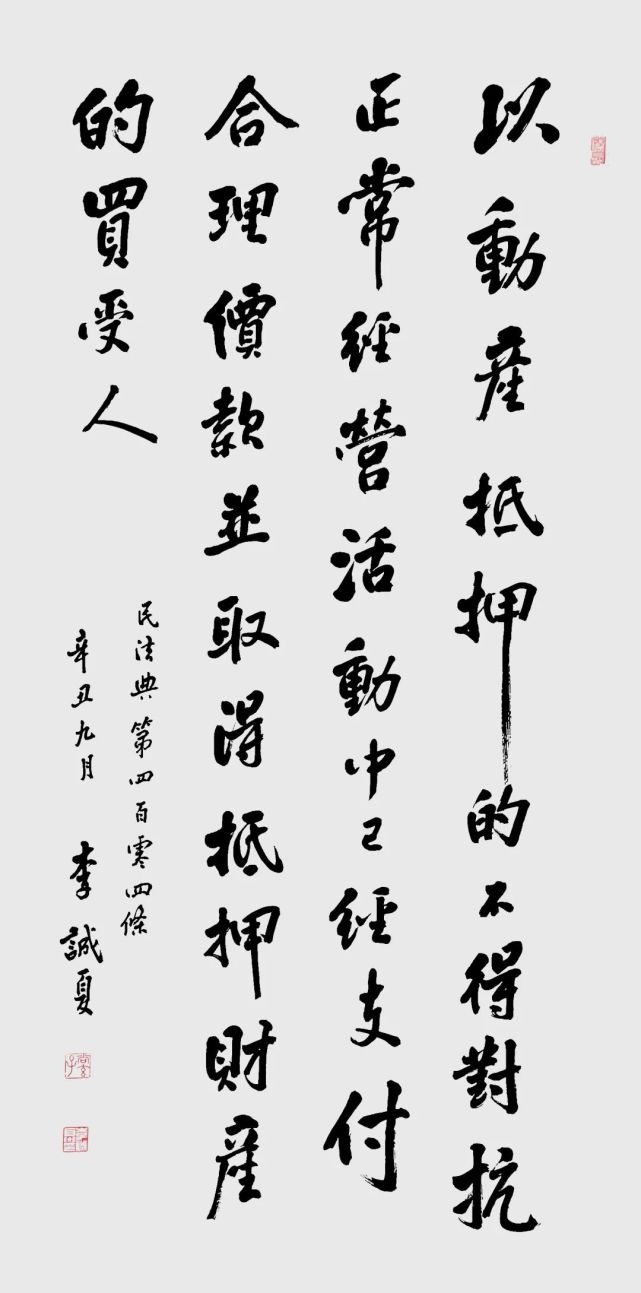 以動產抵押的不得對抗
正常經營活動中已經支付
合理價款並取得抵押財產
的買受人
民法典第四百零四條
辛丑九月 李誠夏